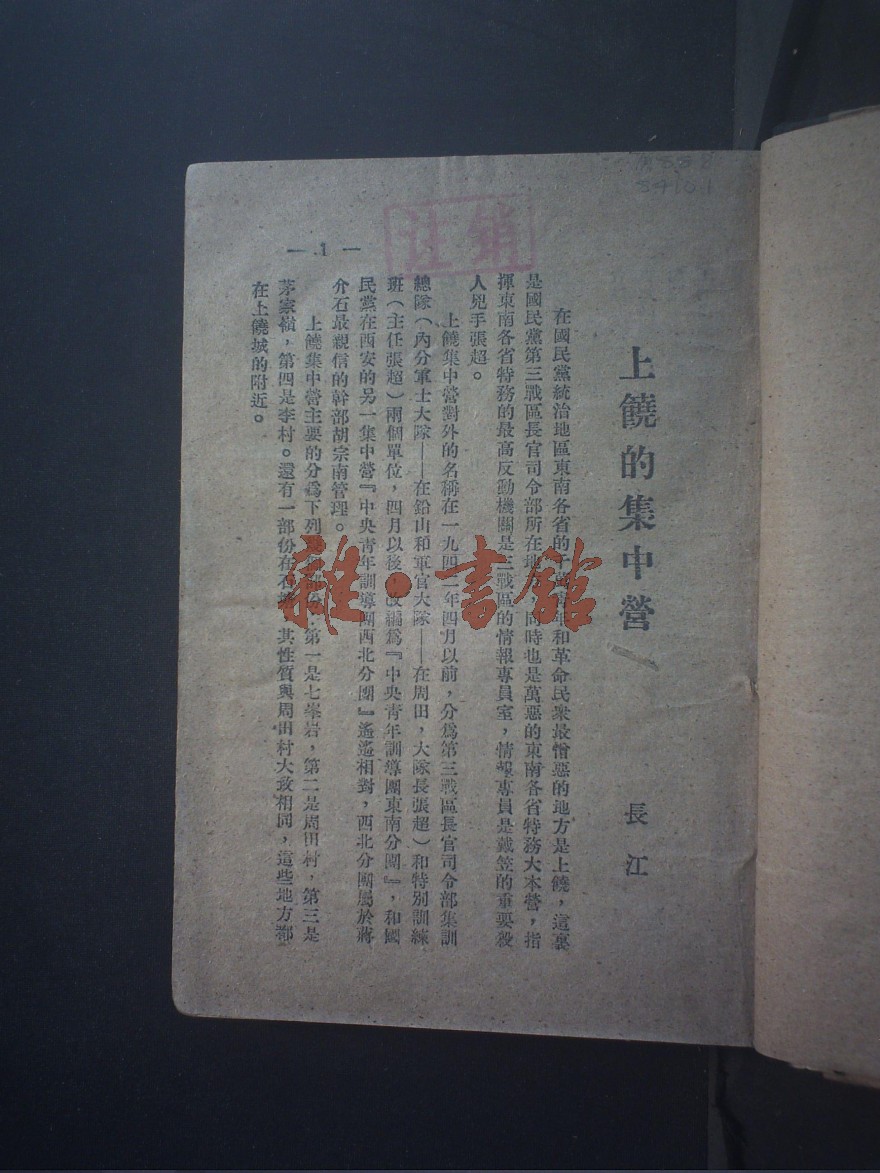 上饒的集中營
長江
在國民黨統治地區東南各省的千萬青年和革命民衆最憎惡的地方是上饒，這裏
是國民黨第三戰區長官司令部所在地方，同時也是萬惡的東南各省特務大本營，指
揮東南各省特務的最高反動機關是三戰區的情報專員室，情報專員是戴笠的重要殺
人兇手張超。
上饒集中營對外的名稱在一九四二年四月以前，分爲第三戰區長官司令部集訓
總隊（內分軍士大隊——在鉛山和軍官大隊——在周田，大隊長張超）和特別訓練
班（主任張超）兩個單位，四月以後，改編爲『中央青年訓導團東南分團』，和國
民黨在西安的另一集中營『中央青年訓導團西北分團』遙遙相對，西北分團屬於蔣
介石最親信的幹部胡宗南管理。
上饒集中營主要的分爲下列部份，第一是七峯岩，第二是周田村，第三是
茅家嶺，第四是李村。還有一部份在石塘，其性質與周田村大致相同，這些地方都
在上饒城的附近。
— 1 —
註銷
雜·書館